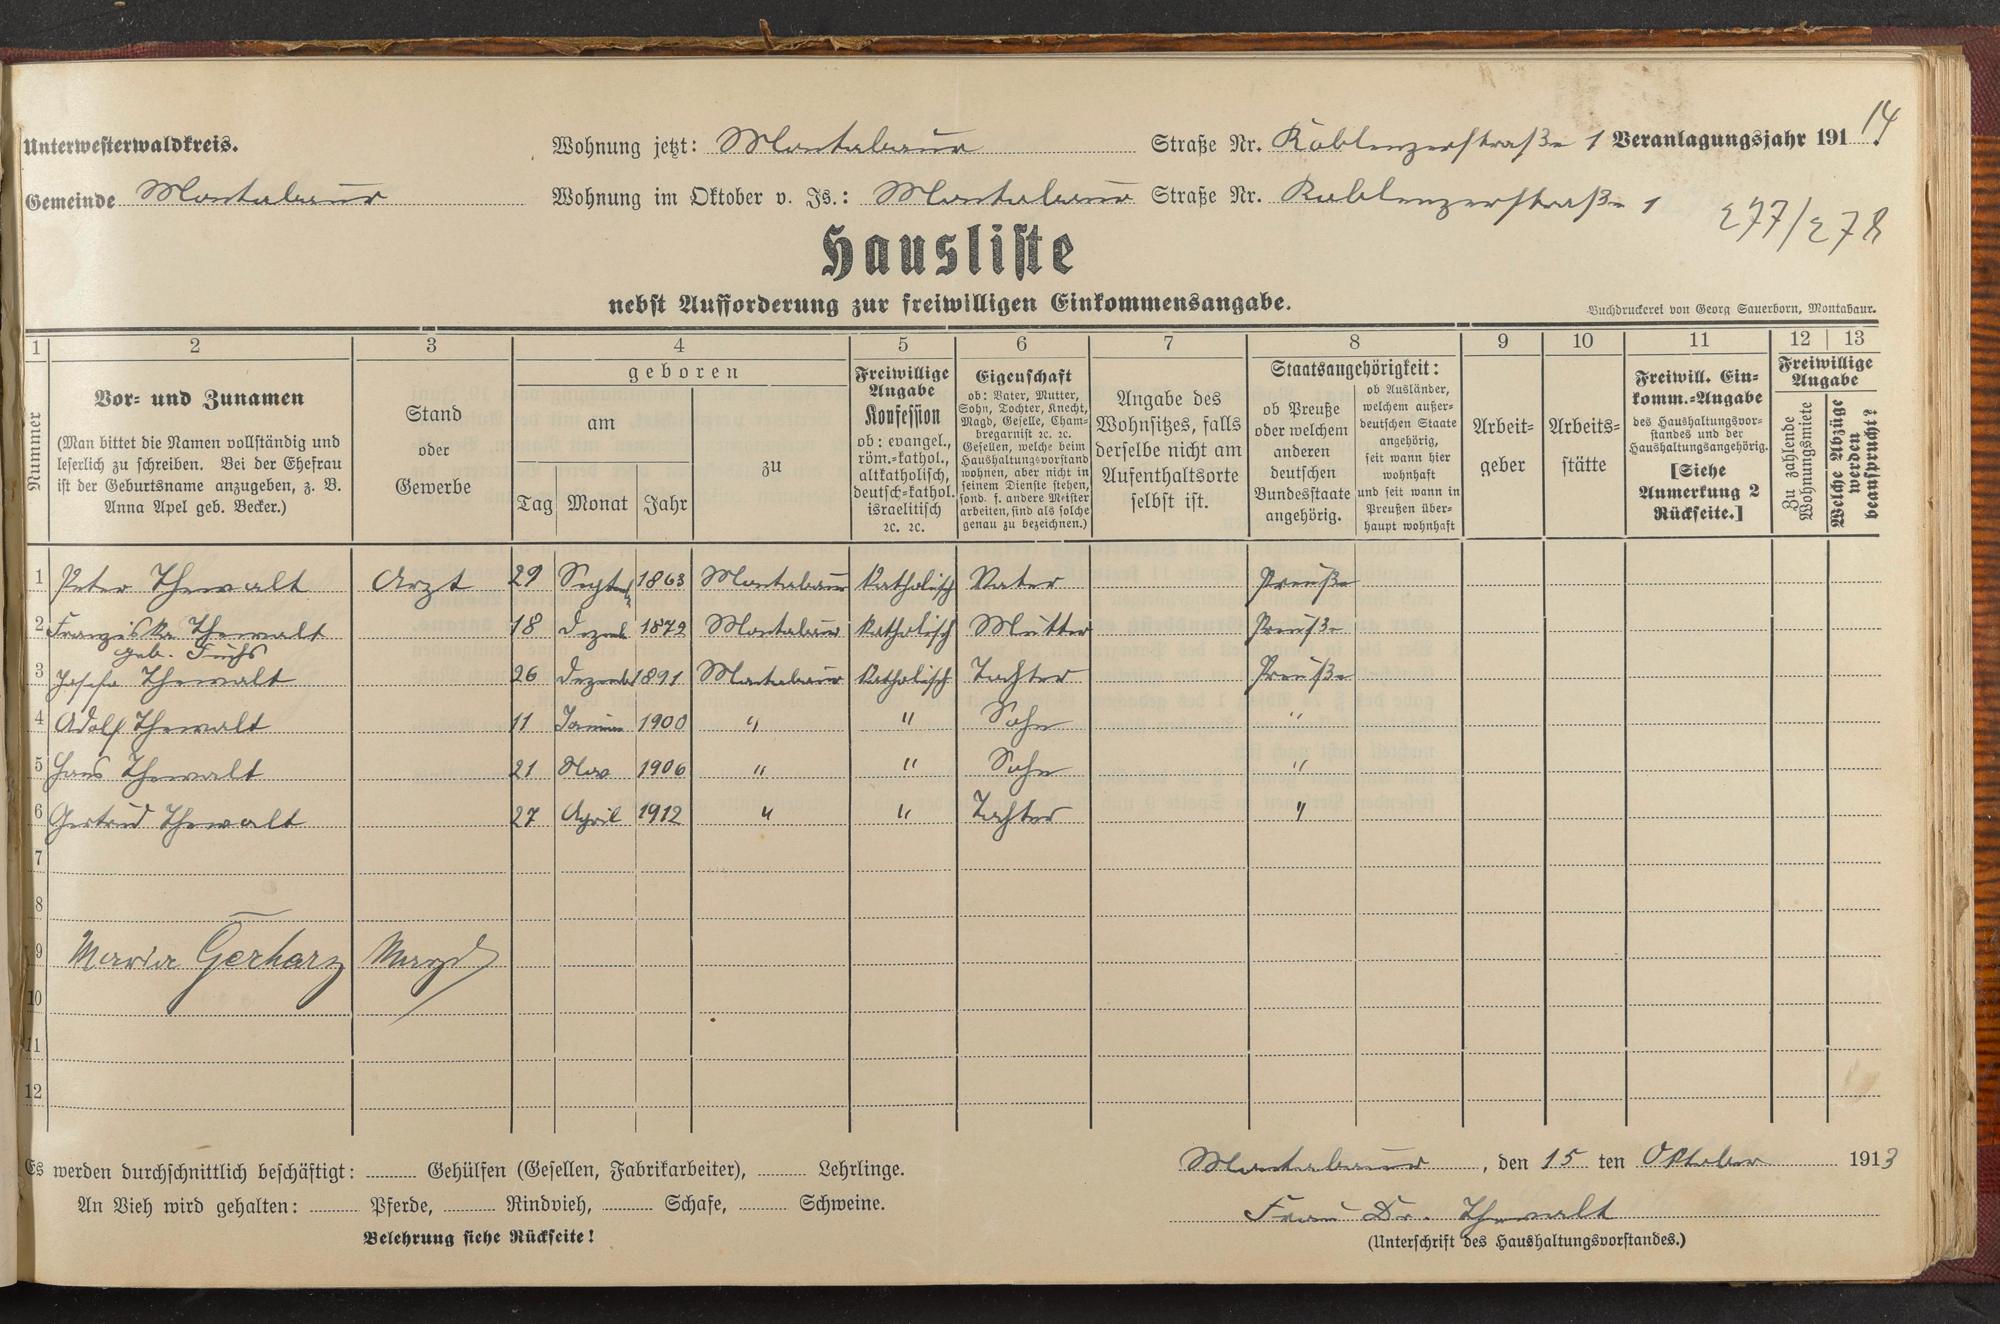 Unterwesterwaldkreis. Wohnung jetzt: Montabaur Straße Nr. Koblenzerstraße 1 Veranlagungsjahr 191 14
Gemeinde Montabaur Wohnung im Oktober v. Js.: Montabaur Straße Nr. Koblenzerstraße 1
277/278
Hausliste
nebst Aufforderung zur freiwilligen Einkommensangabe.
Buchdruckerei von Georg Sauerborn, Montabaur.
1 2 3 4 5 6 7 8 9 10 11 12 13
Nummer
Vor- und Zunamen
(Man bittet die Namen vollständig und
leserlich zu schreiben. Bei der Ehefrau
ist der Geburtsname anzugeben, z. B.
Anna Apel geb. Becker.)
Stand
oder
Gewerbe
geboren
am
Tag Monat Jahr
zu
Freiwillige
Angabe
Konfession
ob: evangel.,
röm.-kathol.,
altkatholisch,
deutsch-kathol.
israelitisch
ec. ec.
Eigenschaft
ob: Vater, Mutter,
Sohn, Tochter, Knecht,
Magd, Geselle, Cham-
bregarnist ec. ec.
Gesellen, welche beim
Haushaltungsvorstand
wohnen, aber nicht in
seinem Dienste stehen,
sond. f. andere Meister
arbeiten, sind als solche
genau zu bezeichnen.)
Angabe des
Wohnsitzes, falls
derselbe nicht am
Aufenthaltsorte
selbst ist.
Staatsangehörigkeit:
ob Preuße
oder welchem
anderen
deutschen
Bundesstaate
angehörig.
ob Ausländer,
welchem außer-
deutschen Staate
angehörig,
seit wann hier
wohnhaft
und seit wann in
Preußen über-
haupt wohnhaft
Arbeit-
geber
Arbeits-
stätte
Freiwill. Ein-
komm.-Angabe
des Haushaltungsvor-
standes und der
Haushaltungsangehörig.
[Siehe
Anmerkung 2
Rückseite.]
Freiwillige
Angabe
Zu zahlende
Wohnungsmiete
Welche Abzüge
werden
beansprucht?
1 Peter Thewalt Arzt 29 Septemb 1863 Montabaur Katholisch Vater Preuße
2 Franziska Thewalt 18 Dezemb 1872 Montabaur Katholisch Mutter Preuße
geb. Fuchs
3 Josefa Thewalt 26 Dezemb 1891 Montabaur Katholisch Tochter Preuße
4 Adolf Thewalt 11 Januar 1900 " " Sohn "
5 Hans Thewalt 21 Nov 1906 " " Sohn "
6 Gertrud Thewalt 27 April 1912 " " Tochter "
7
8
9 Maria Gerharz Magd
10
11
12
Es werden durchschnittlich beschäftigt: Gehülfen (Gesellen, Fabrikarbeiter), Lehrlinge.
An Vieh wird gehalten: Pferde, Rindvieh, Schafe, Schweine.
Belehrung siehe Rückseite!
Montabaur, den 15 ten Oktober 1913
Frau Dr. Thewalt
(Unterschrift des Haushaltungsvorstandes.)